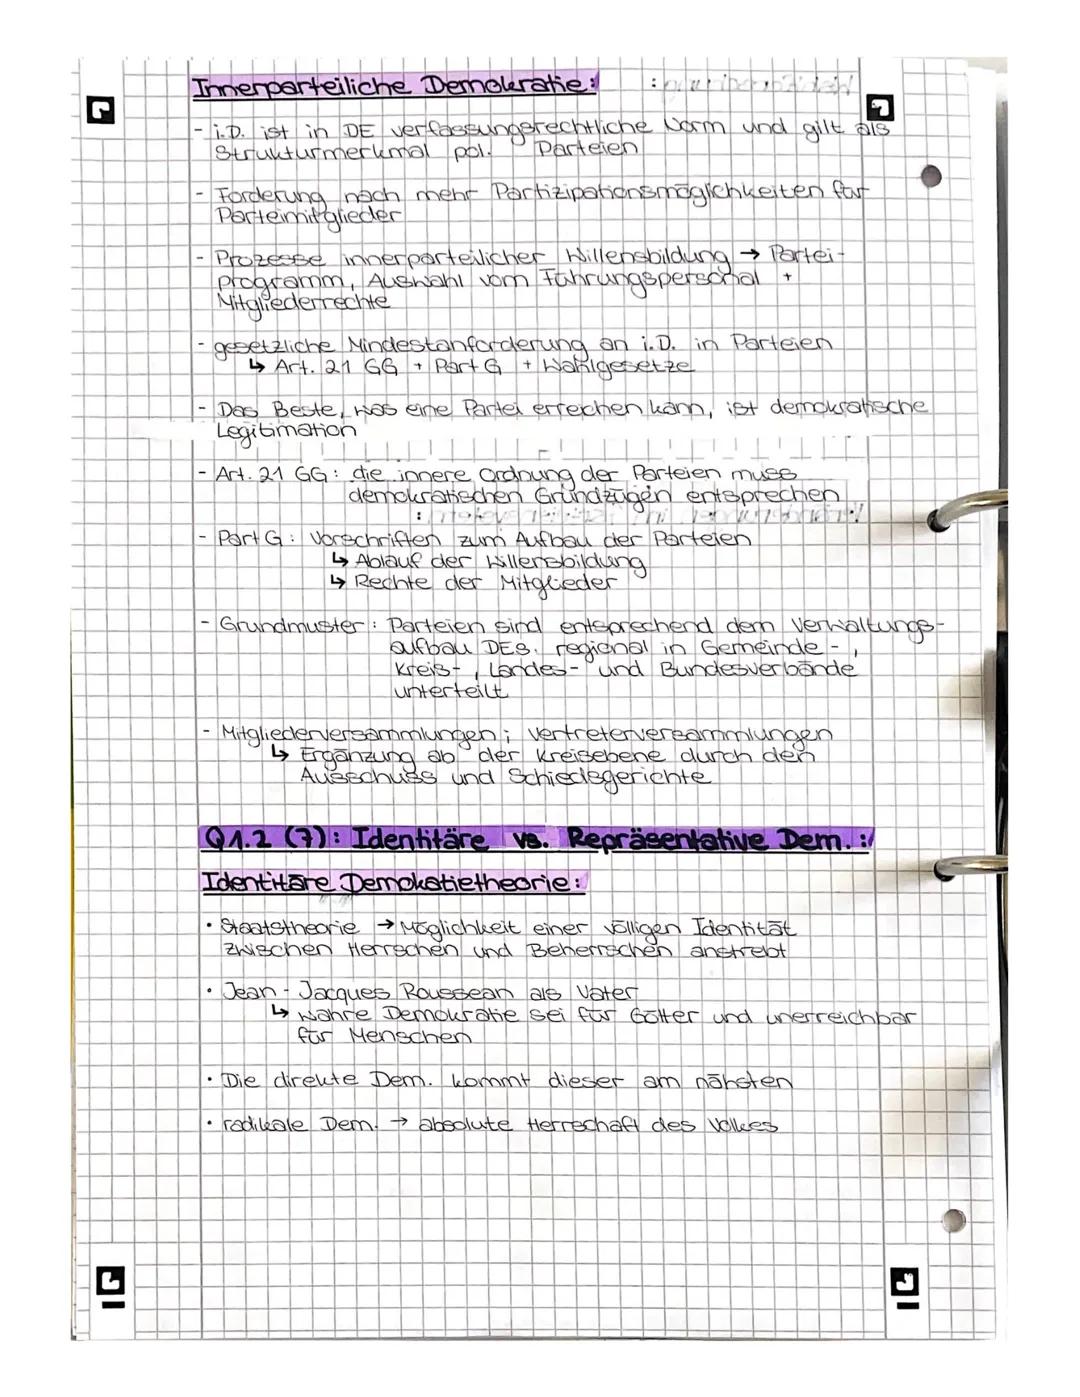 Innerparteiliche Demokratie:
- i.D. ist in DE verfassungsrechtliche Norm und gilt als
Strukturmerkmal pol. Parteien
- Forderung nach mehr Partizipationsmöglichkeiten für
Parteimitglieder
- Prozesse innerparteilicher Willensbildung → Partei-
programm, Auswahl vom Führungspersonal +
Mitgliederrechte
- gesetzliche Mindestanforderung an i.D. in Parteien
↳ Art. 21 GG + Part G + Wahlgesetze
- Das Beste, was eine Partei erreichen kann, ist demokratische
Legitimation
- Art. 21 GG: die innere Ordnung der Parteien muss
demokratischen Grundzügen entsprechen
- Part G: Vorschriften zum Aufbau der Parteien
↳ Ablauf der Willensbildung
↳ Rechte der Mitglieder
- Grundmuster: Parteien sind entsprechend dem Verwaltungs-
aufbau DEs. regional in Gemeinde-,
Kreis-, Landes- und Bundesverbände
unterteilt
- Mitgliederversammlungen; Vertreterversammlungen
↳ Ergänzung ab der Kreisebene durch den
Ausschuss und Schiedsgerichte
Q1.2 (7): Identitäre vs. Repräsentative Dem.:
Identitäre Demokatietheorie:
• Staatstheorie → Möglichkeit einer völligen Identität
zwischen Herrschen und Beherrschen anstrebt
• Jean-Jacques Roussean als Vater
↳ Wahre Demokratie sei für Götter und unerreichbar
für Menschen
• Die direkte Dem. kommt dieser am nähsten
• radikale Dem. → absolute Herrschaft des Volkes